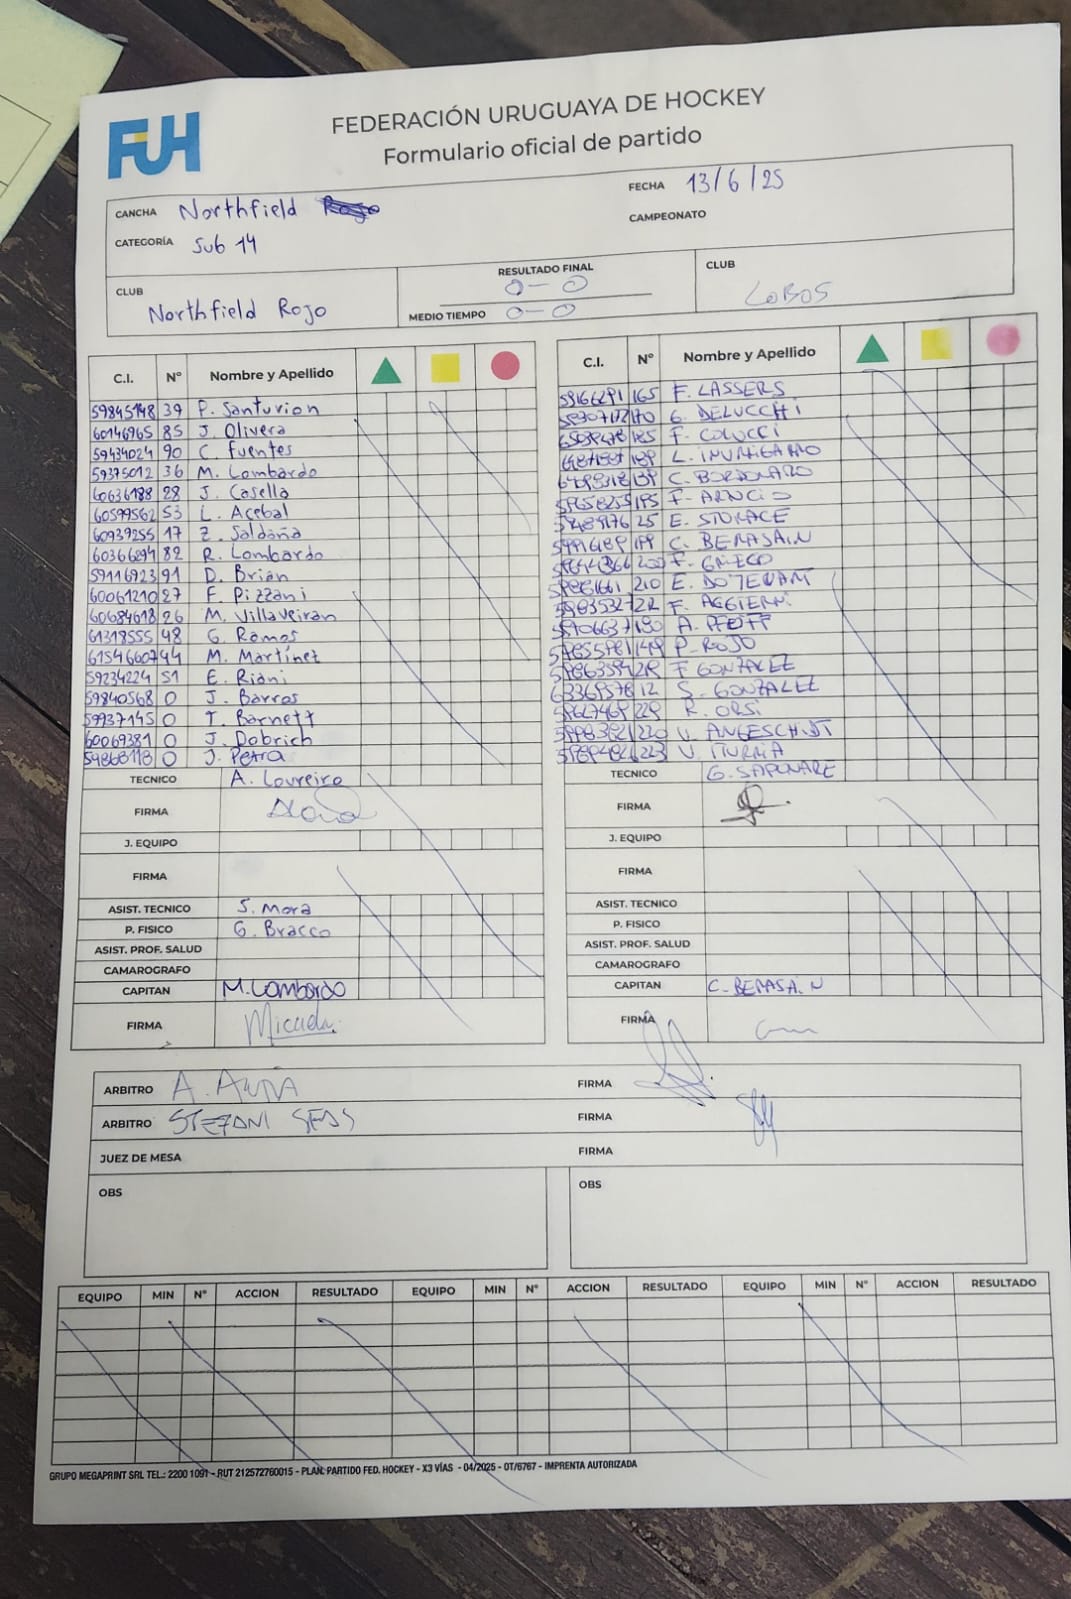 FUH
FEDERACIÓN URUGUAYA DE HOCKEY
Formulario oficial de partido
CANCHA Northfield
FECHA 13/6/25
CATEGORÍA Sub 14
CAMPEONATO
CLUB Northfield Rojo
RESULTADO FINAL 0-0
MEDIO TIEMPO 0-0
CLUB LOBOS
C.I. Nº Nombre y Apellido
59845148 39 P. Santurion
60146965 85 J. Olivera
59434024 90 C. Fuentes
59375012 36 M. Lombardo
60636188 28 J. Casella
60599562 53 L. Acebal
60939255 17 Z. Saldaña
60366294 82 R. Lombardo
59116923 91 D. Brian
60061210 27 F. Pizzani
60684618 26 M. Villaveiran
61318555 48 G. Ramos
61546607 44 M. Martinet
59234224 51 E. Riani
59840568 0 J. Barros
59937145 0 T. Barnett
60069381 0 J. Dobrich
59868118 0 J. Petra
TECNICO A. Loureiro
FIRMA
J. EQUIPO
FIRMA
ASIST. TECNICO S. Mora
P. FISICO G. Bracco
ASIST. PROF. SALUD
CAMAROGRAFO
CAPITAN M. Lombardo
FIRMA Micaela
C.I. Nº Nombre y Apellido
59166291 165 F. LASSERS
170 G. DELUCCHI
185 F. COLUCCI
189 L.
C. BORDONARO
195 F.
25 E. STORACE
199 C. BERASAIN
200 F. GRIECO
210 E.
F.
180 A. PFEIFF
149 P. ROJO
F GONZALEZ
12 S. GONZALEZ
229 R. ORSI
220 V.
223 V. ITURRIA
TECNICO G. SAPONARE
FIRMA
J. EQUIPO
FIRMA
ASIST. TECNICO
P. FISICO
ASIST. PROF. SALUD
CAMAROGRAFO
CAPITAN C. BERASAIN
FIRMA
ARBITRO A. FIRMA
ARBITRO STEFANI FIRMA
JUEZ DE MESA FIRMA
OBS OBS
EQUIPO MIN Nº ACCION RESULTADO EQUIPO MIN Nº ACCION RESULTADO EQUIPO MIN Nº ACCION RESULTADO
GRUPO MEGAPRINT SRL TEL.: 2200 1091 - RUT 212572760015 - PLAN. PARTIDO FED. HOCKEY - X3 VÍAS - 04/2025 - OT/6767 - IMPRENTA AUTORIZADA